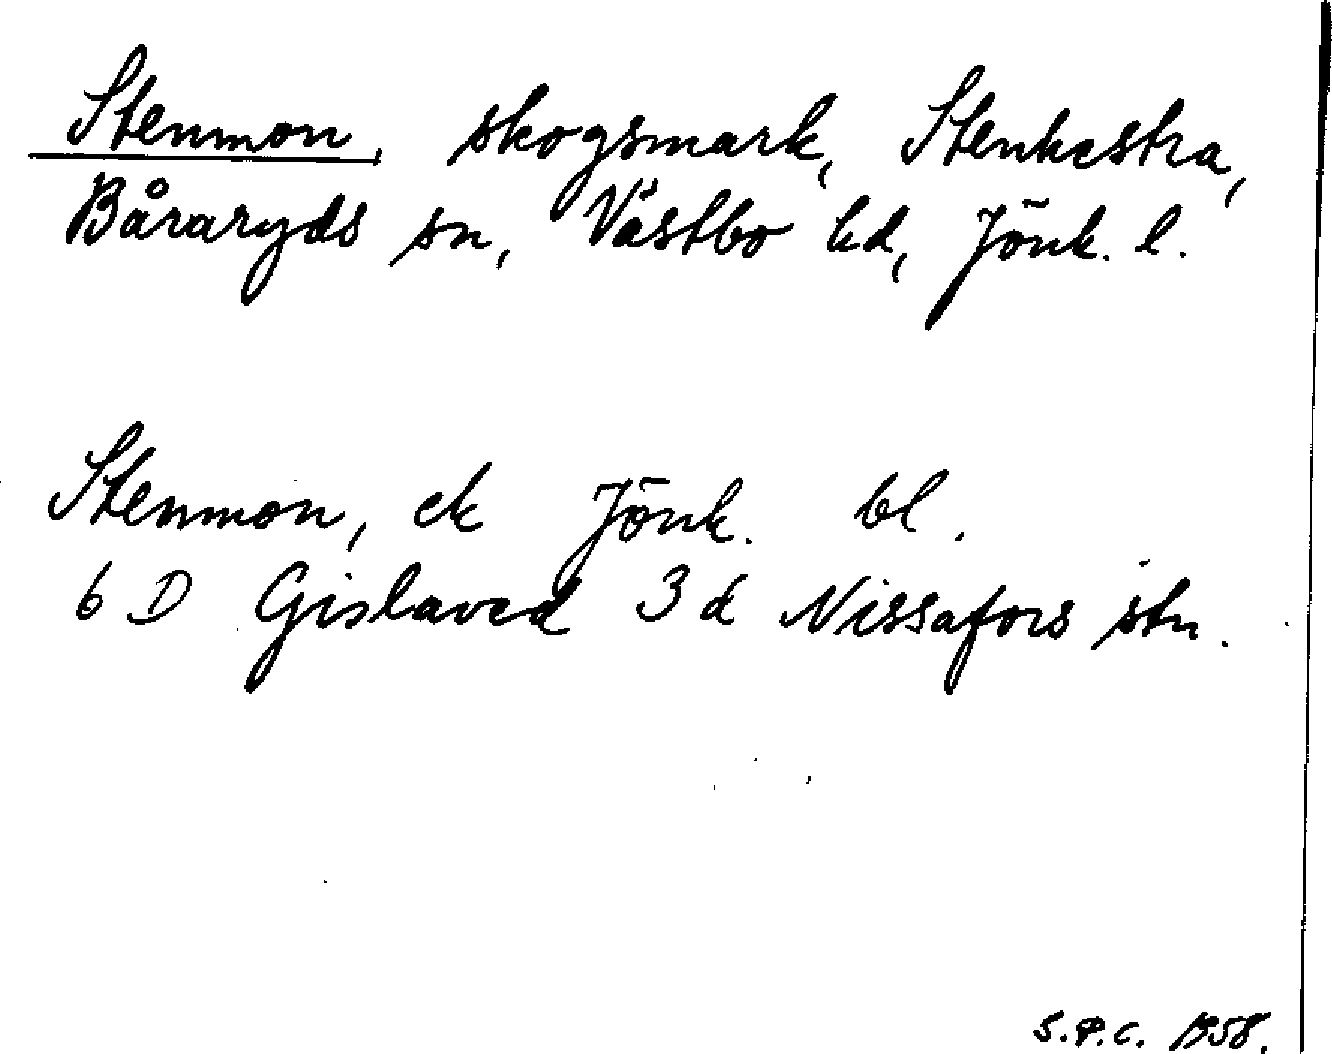 Stenmon, skogsmark, Stenhestra,
Båraryds sn, Västbo hd, Jönk. l.
Stenmon, ek Jönk. bl.
6 D Gislaved 3 d Nissafors stn.
S.P.C. 1958.